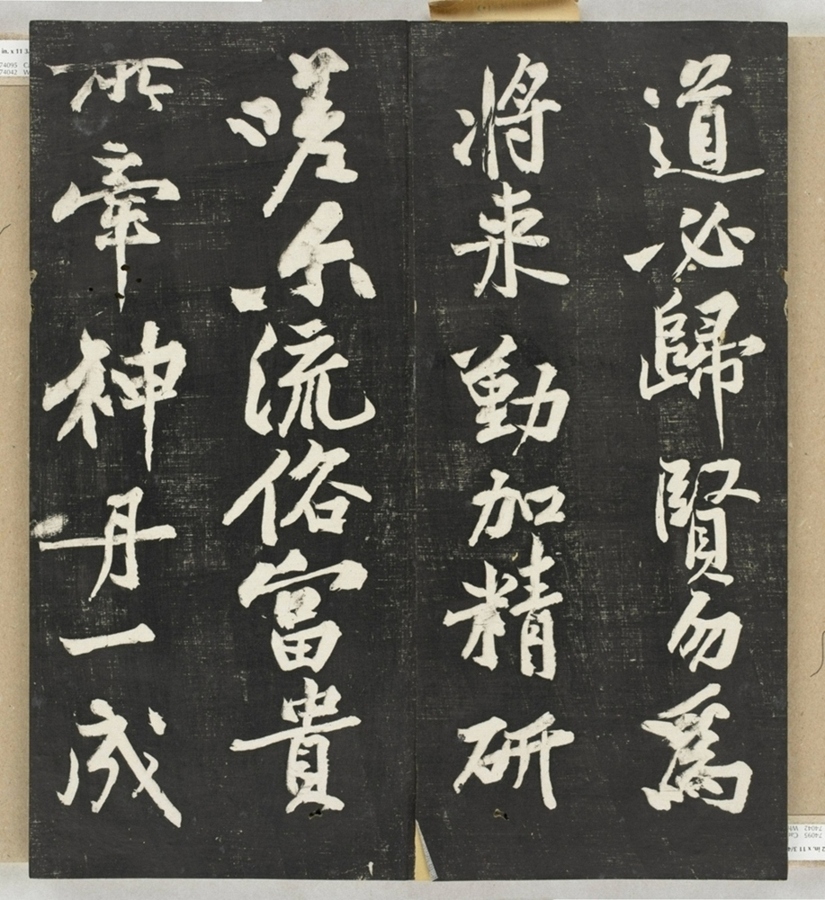 道必歸賢勿爲
將来勤加精研
嗟尔流俗富貴
所牽神丹一成